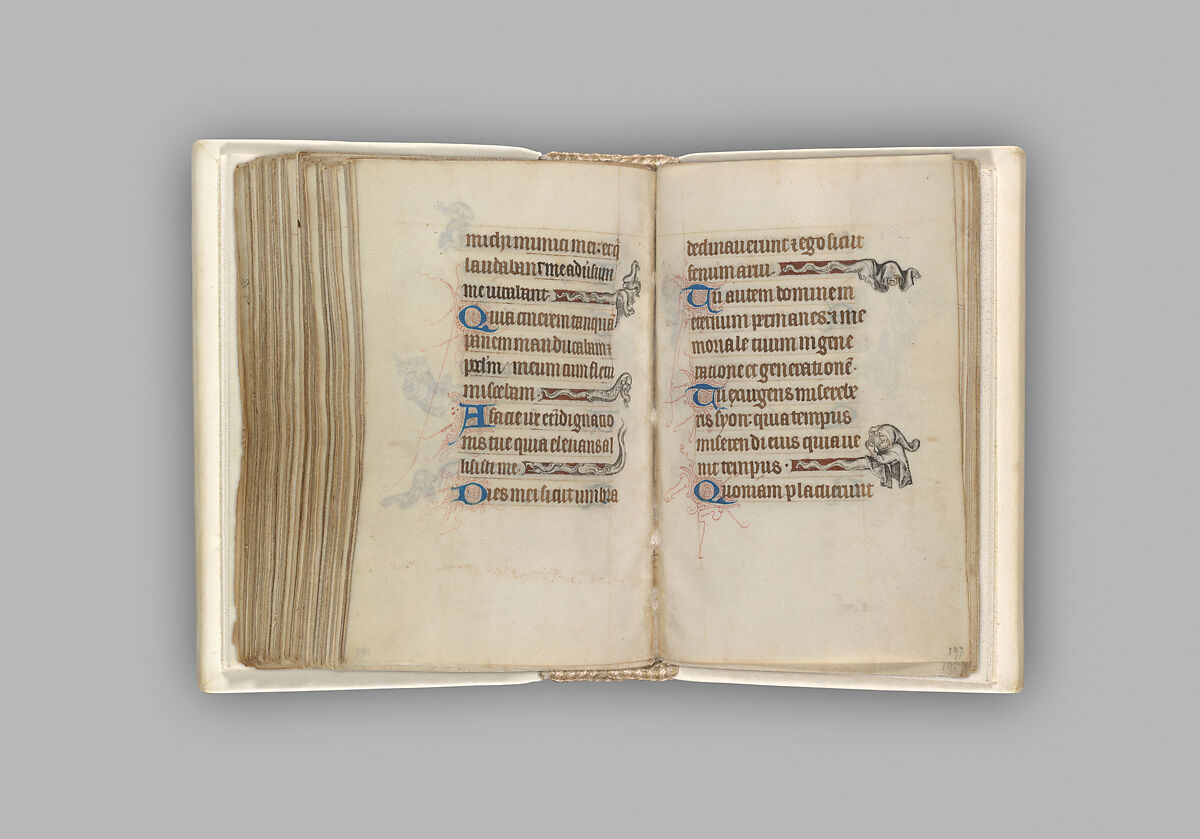 michi inimici mei: et q̄
laudabant me adūsum
me iurabant·
Quia cinerem tanquā
panem manducabam ⁊
potūm meum cum fletu
miscebam·
A facie ire et īdignatio
nis tue quia elevans al
lisisti me·
Dies mei sicut umbra
declinaverunt ⁊ ego sicut
fenum arui·
Tu autem domine in
eternum permanes: ⁊ me
moriale tuum in gene
ratione et generationē·
Tu exurgens miserebe
ris syon· quia tempus
miserendi eius quia ve
nit tempus·
Quoniam placuerunt
197